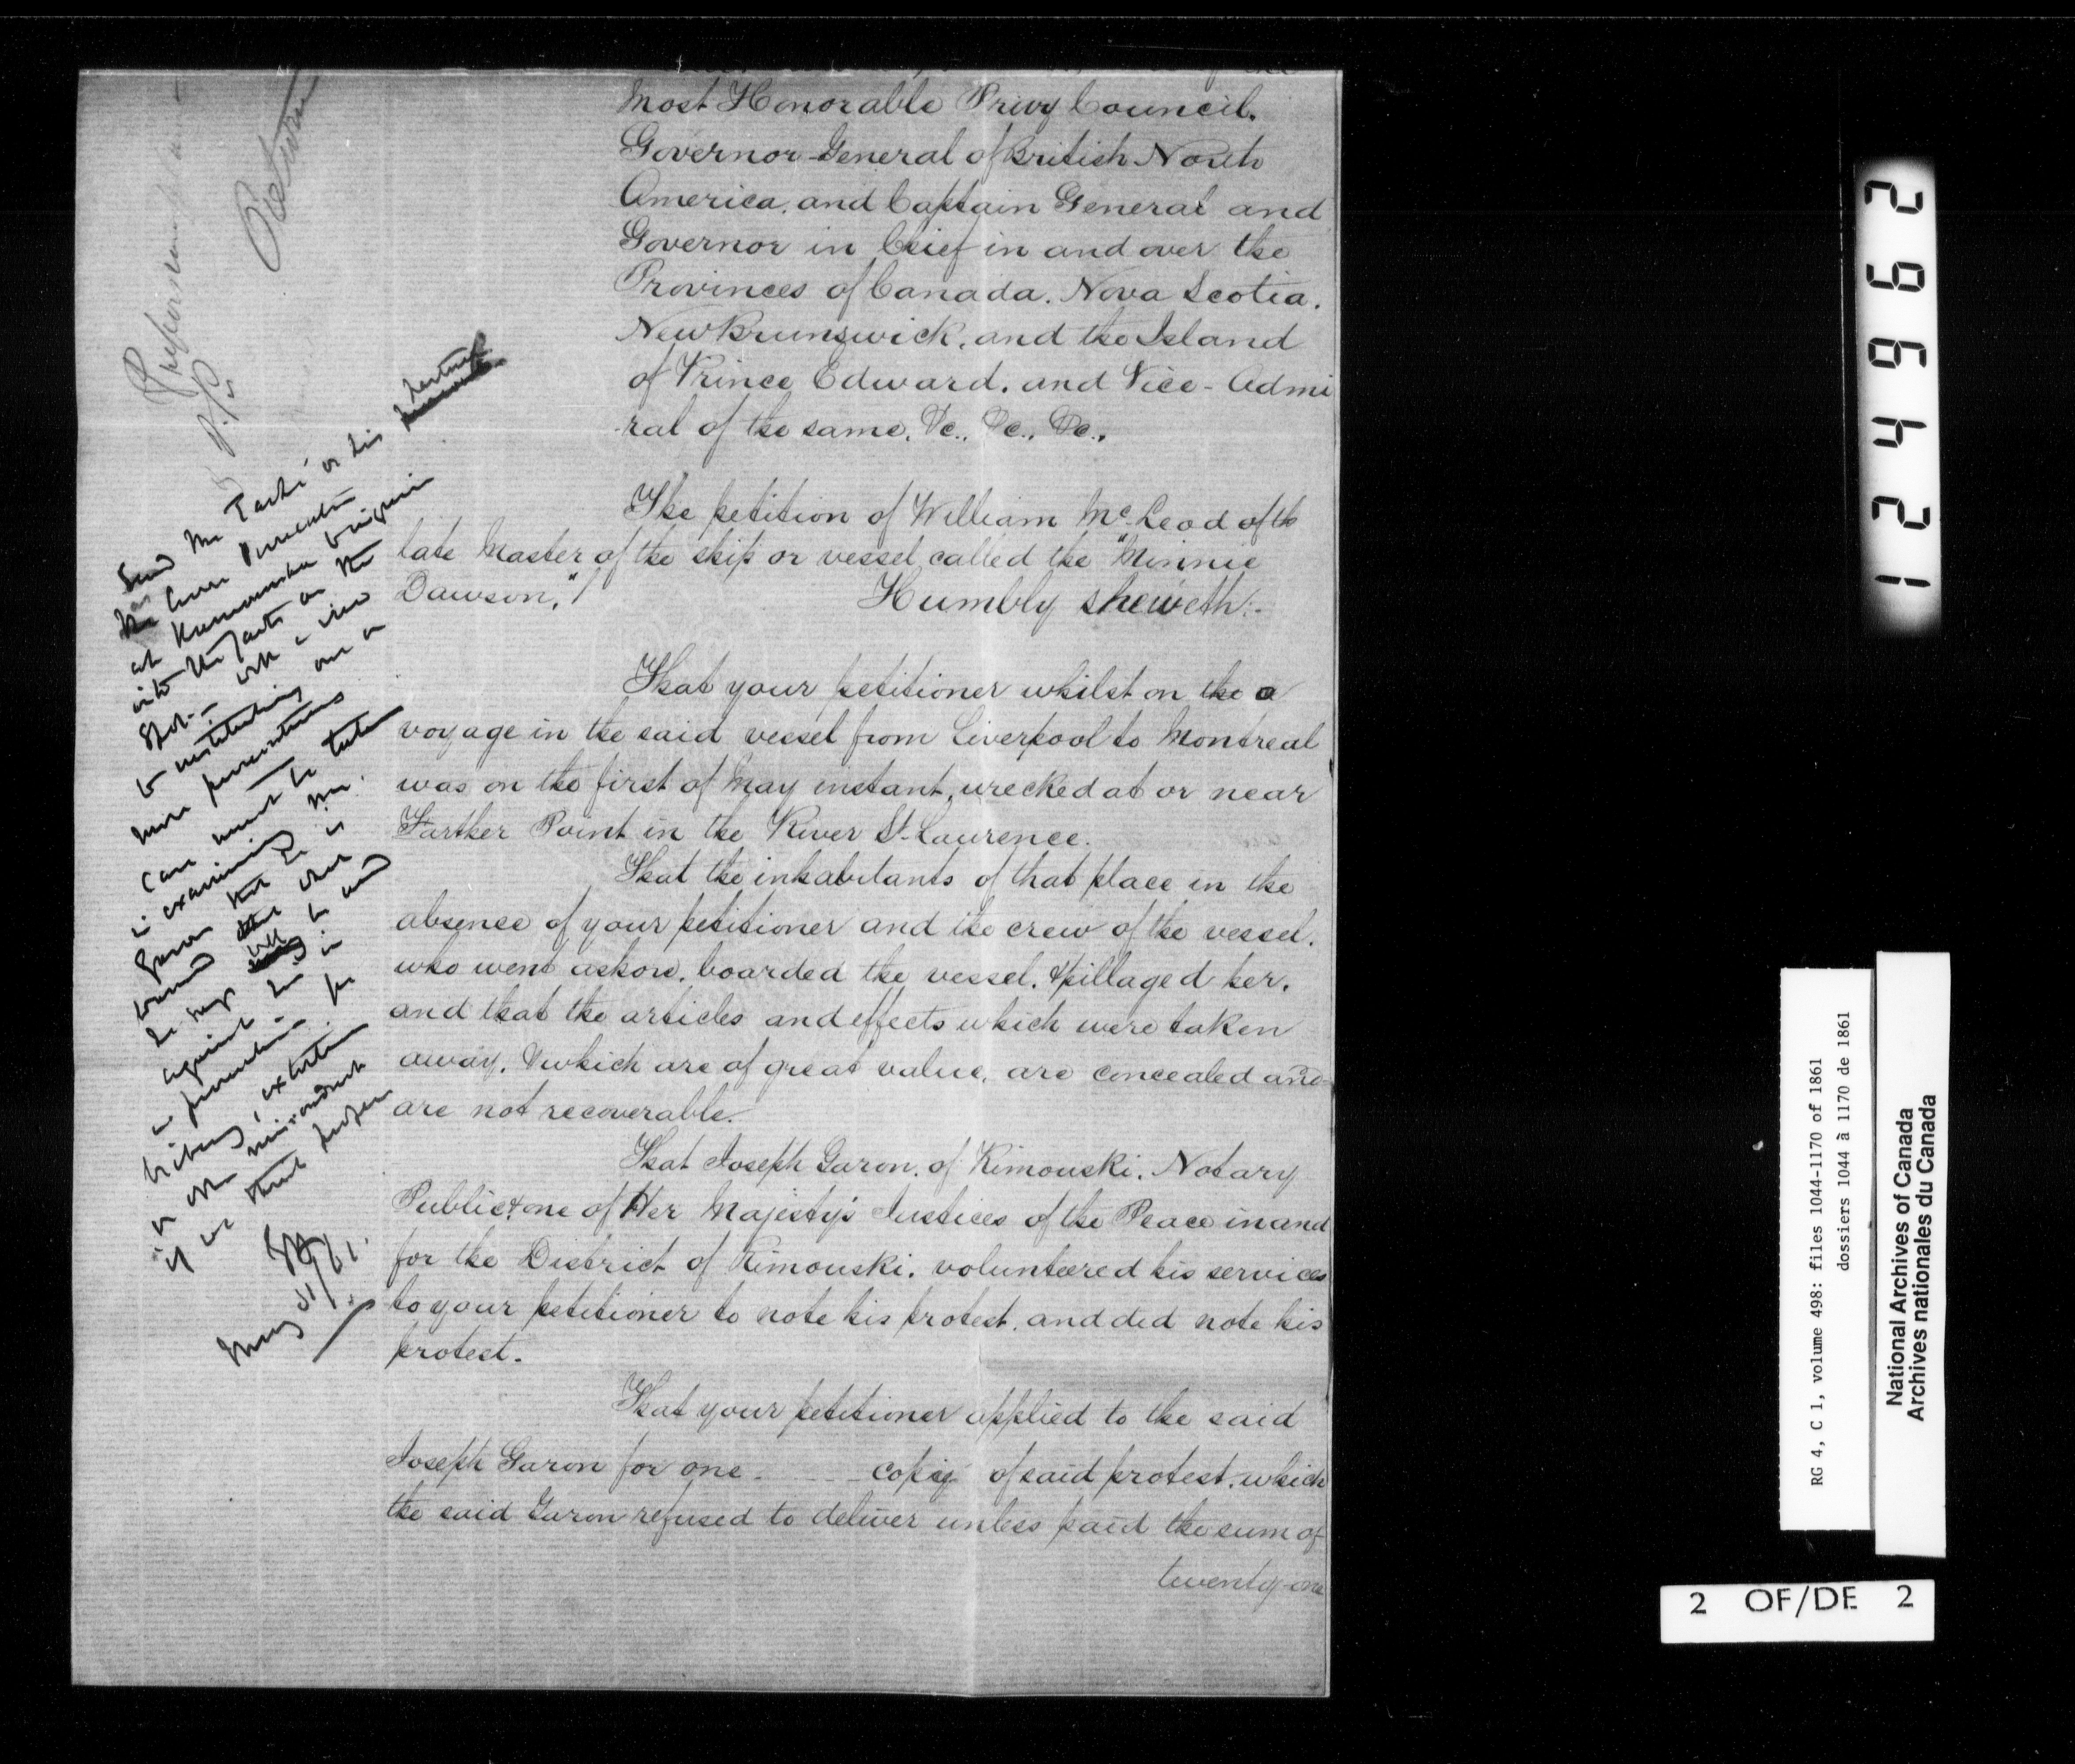 Most Honorable Privy Council.
Governor General of British North
America. and Captain General and
Governor in Chief in and over the
Provinces of Canada. Nova Scotia.
New Brunswick. and the Island
of Prince Edward. and Vice-Admi
-ral of the same. &c., &c., &c.,
The petition of William McLeod of th
late Master of the ship or vessel called the "Minnie
Dawson,"
Humbly sheweth:-
That your petitioner whilst on the a
voyage in the said vessel from Liverpool to Montreal
was on the first of May instant, wrecked at or near
Farther Point in the River St. Laurence.
That the inhabitants of that place in the
absence of your petitioner and the crew of the vessel.
who went ashore. boarded the vessel. & pillaged her.
and that the articles and effects which were taken
away. & which are of great value, are concealed and
are not recoverable.
That Joseph Garon. of Rimouski. Notary
Public & one of Her Majesty's Justices of the Peace in and
for the District of Rimouski. volunteered his services
to your petitioner to note his protest. and did note his
protest.
That your petitioner applied to the said
Joseph Garon for one copy of said protest. which
the said Garon refused to deliver unless paid the sum of
twenty-one
Send Mr Taché or his
at Kamouraska
into the facts on the
spot - with a view
to instituting one or
more prosecutions
Care must be taken
in examining Mr.
Garon that he is
warned that what
he says will be used
against him in
a prosecution for
bribery, extortion
or other misconduct
if we think proper
May 31/61.
124962
RG 4, C 1, volume 498: files 1044-1170 of 1861
dossiers 1044 à 1170 de 1861
National Archives of Canada
Archives nationales du Canada
2 OF/DE 2